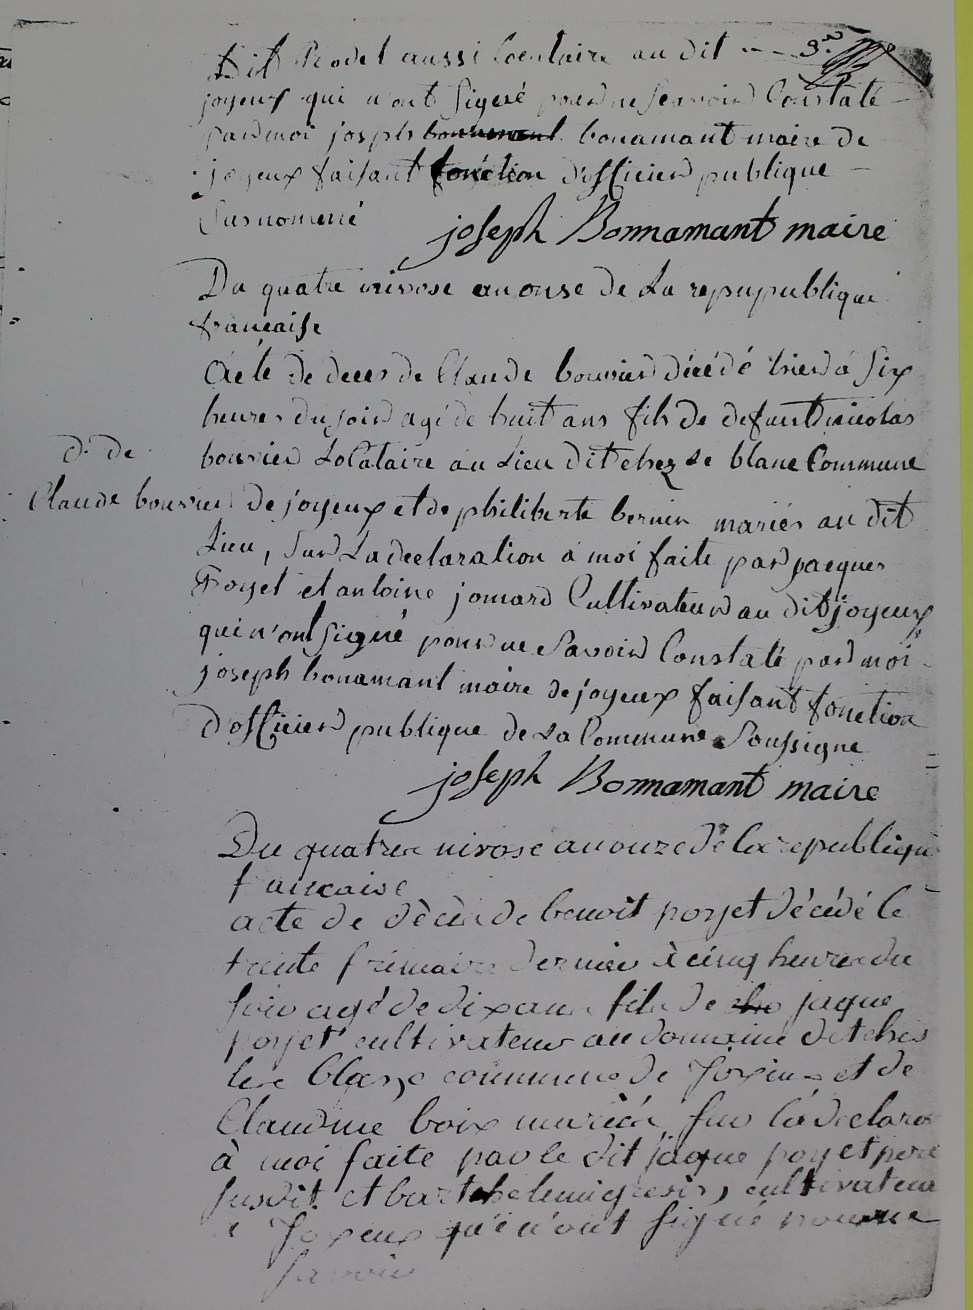 dit Rodet aussi locataire au dit --- 3.e
joyeux qui n'ont signé pour ne scavoir Constaté
par moi joseph bonamant maire de
joyeux faisant fonction d'officier publique
surnomené
joseph Bonnamant maire
Du quatre nivose an onse de La repupublique
francaise
Acte de deces de Claude bouvier décédé hier à six
heures du soir agé de huit ans fils de defunt nicolas
bouvier Locataire au Lieu dit chez Le blanc Commune
d. de
Claude bouvier
de joyeux et de philiberte bernin mariés au dit
Lieu, sur La declaration a moi faite par jacques
Poyet et antoine jomard Cultivateur au dit joyeux
qui n'ont signé pour ne savoir Constaté par moi
joseph bonamant maire de joyeux faisant fonction
d'officier publique de La Commune soussigne
joseph Bonnamant maire
Du quatre nivose an onze de la republique
francaise
acte de dècès de benoit poyet décédé le
trente frimaire dernier à cinq heures du
soir agé de dix ans fils de jaque
poyet cultivateur au domaine dit ches
le blanc commune de Joyeux et de
Claudine boix mariés sur la declara
à moi faite par le dit jaque poyet pere
susdit et barthelemi cultivateur
a Joyeux qui n'ont signé pour ne
savoir